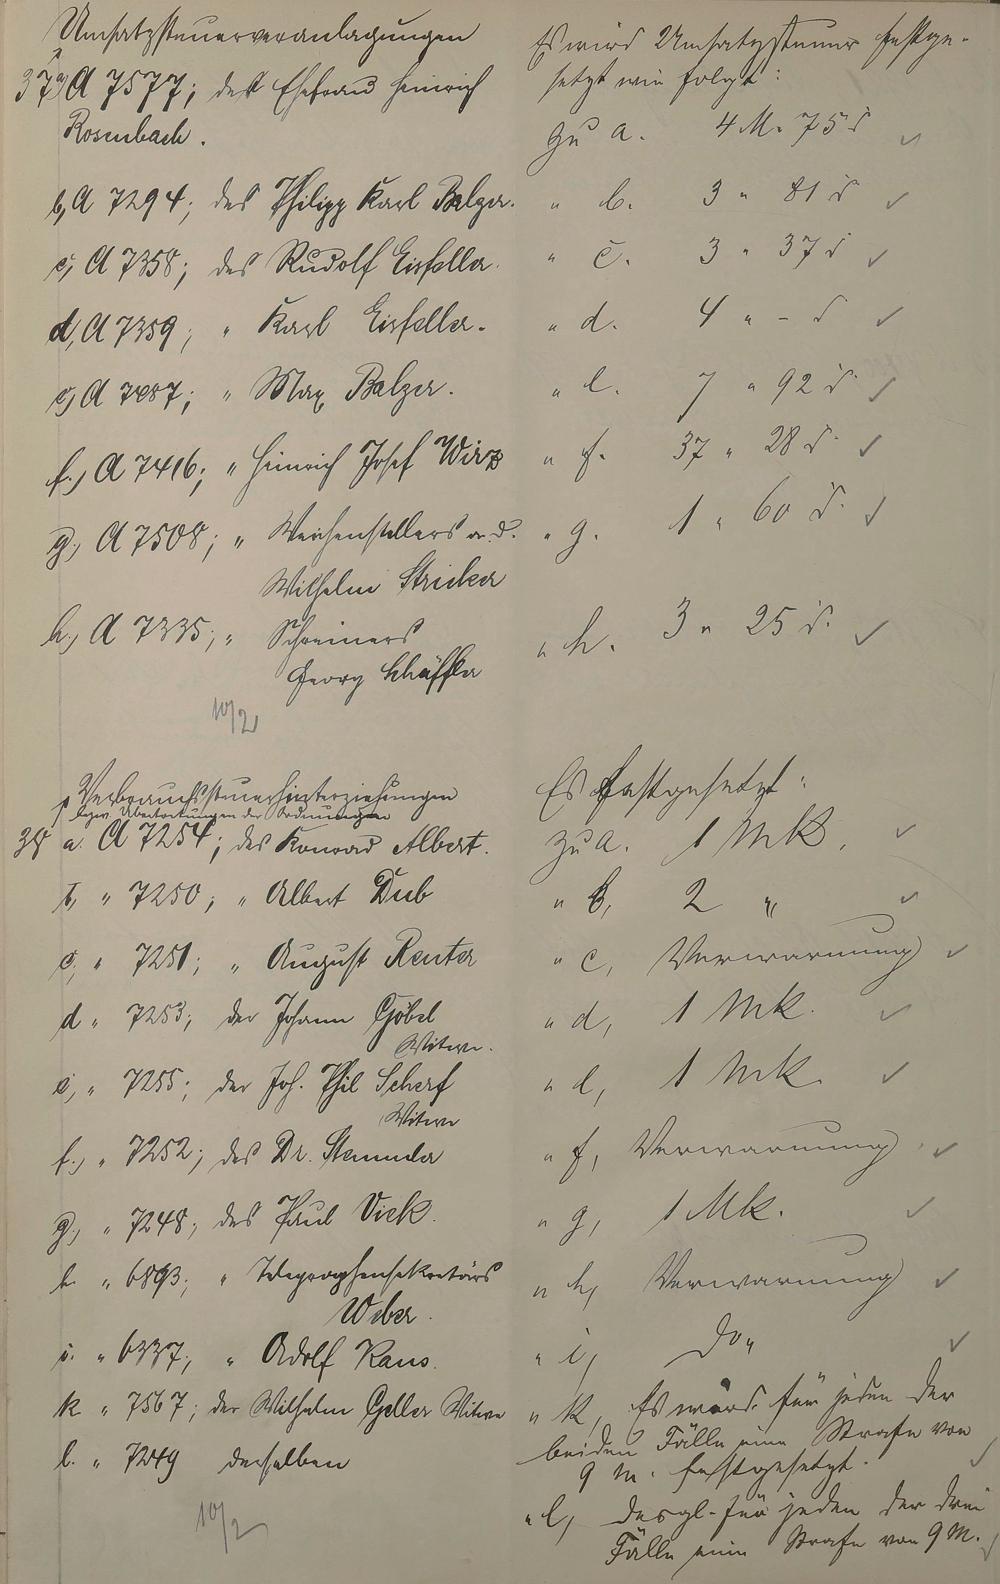 Umsatzsteuerveranlagungen
37 a, A 7577; der Ehefrau Heinrich
Rosenbach.
b, A 7294; des Philipp Karl Balzer.
c, A 7358; des Rudolf Eisfeller.
d, A 7359; " Karl Eisfeller.
e, A 7487; " Max Balzer.
f.) A 7416; " Heinrich Josef Wirz
g, A 7508; " Weichenstellers a. D.
Wilhelm Stricker
h., A 7335; " Schreiners
Georg Schäffer
10/2
Es wird Umsatzsteuer festge-
setzt wie folgt:
Zu a. 4 M. 75 ₰
" b. 3 " 81 ₰
" c. 3 " 37 ₰
" d. 4 " - ₰
" e. 7 " 92 ₰
" f. 37 " 28 ₰
" g. 1 " 60 ₰
" h. 3 " 25 ₰
Verbrauchssteuerhinterziehungen
bezw. Übertretungen der Ordnungen
38 a. A 7254; des Konrad Albert.
b, " 7250; " Albert Dub
c, " 7251; " August Reuter
d " 7253; der Johann Göbel
Witwe.
e, " 7255; der Joh. Phil Scherf
Witwe
f., " 7252; des Dr. Stemmler
g., " 7248; des Paul Vick.
h. " 6893; " Telegraphensekretärs
Weber.
i. " 6337; " Adolf Kaus.
k " 7567; der Wilhelm Geller Witwe
l. " 7249 derselben
10/2
Es festgesetzt:
zu a. 1 Mk.
" b, 2 "
" c, Verwarnung
" d, 1 Mk.
" e, 1 Mk.
" f, Verwarnung
" g, 1 Mk.
" h, Verwarnung
" i, Do"
" k, Es wird für jeden der
beiden Fälle eine Strafe von
9 M. festgesetzt.
" l, desgl. für jeden der drei
Fälle eine Strafe von 9 M.